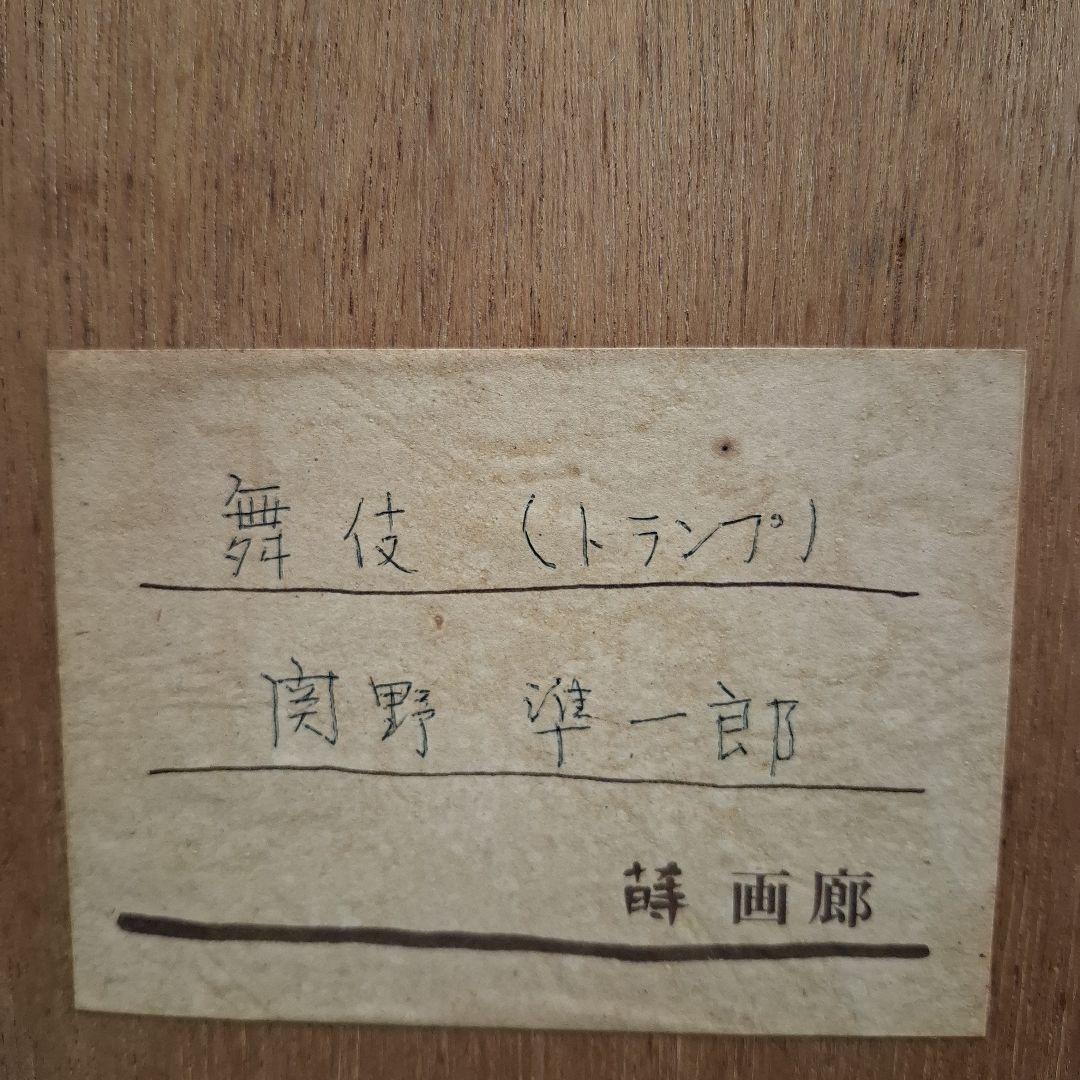 舞伎 (トランプ)
関野 準一郎
蒔画廊